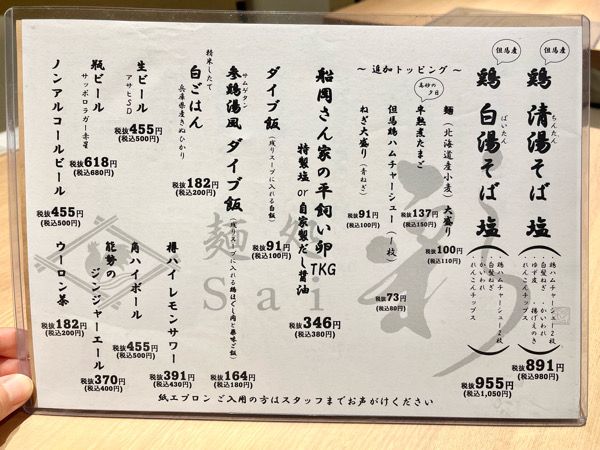 但馬産
鶏 清湯そば 塩
ちんたん
鶏ハムチャーシュー2枚
白髪ねぎ ・かいわれ
ゆず皮 ・揚げえのき
れんこんチップス
税抜891円
(税込980円)
但馬産
鶏 白湯そば 塩
ぱいたん
鶏ハムチャーシュー2枚
白髪ねぎ
かいわれ
れんこんチップス
税抜955円
(税込1,050円)
〜 追加トッピング 〜
麺(北海道産小麦) 大盛り
税抜100円
(税込110円)
高砂の夕日
半熟煮たまご
税抜137円
(税込150円)
但馬鶏ハムチャーシュー(1枚)
税抜73円
(税込80円)
ねぎ大盛り(青ねぎ)
税抜91円
(税込100円)
船岡さん家の平飼い卵TKG
特製塩 or 自家製だし醤油
税抜346円
(税込380円)
ダイブ飯
(残りスープに入れる白飯)
税抜91円
(税込100円)
サムゲタン
参鶏湯風 ダイブ飯
(残りスープに入れる鶏ほぐし肉と薬味ご飯)
税抜164円
(税込180円)
精米したて
白ごはん
兵庫県産きぬひかり
税抜182円
(税込200円)
生ビール
アサヒSD
税抜455円
(税込500円)
瓶ビール
サッポロラガー赤星
税抜618円
(税込680円)
ノンアルコールビール
税抜455円
(税込500円)
樽ハイレモンサワー
税抜391円
(税込430円)
角ハイボール
税抜455円
(税込500円)
能勢の
ジンジャーエール
税抜370円
(税込400円)
ウーロン茶
税抜182円
(税込200円)
麺処
彩
Sai
紙エプロンご入用の方はスタッフまでお声がけください